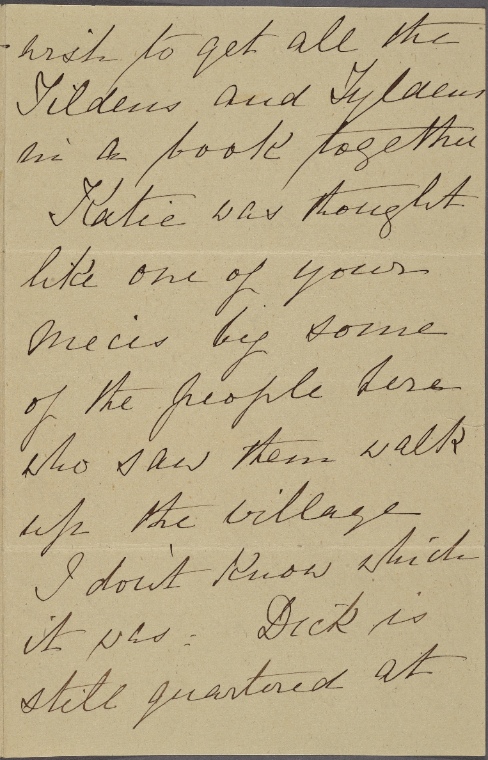 wish to get all the
Tildens and Tyldens
in a book together
Katie was thought
like one of your
neices by some
of the people here
who saw them walk
up the village
I don't know which
it was. Dick is
still quartered at